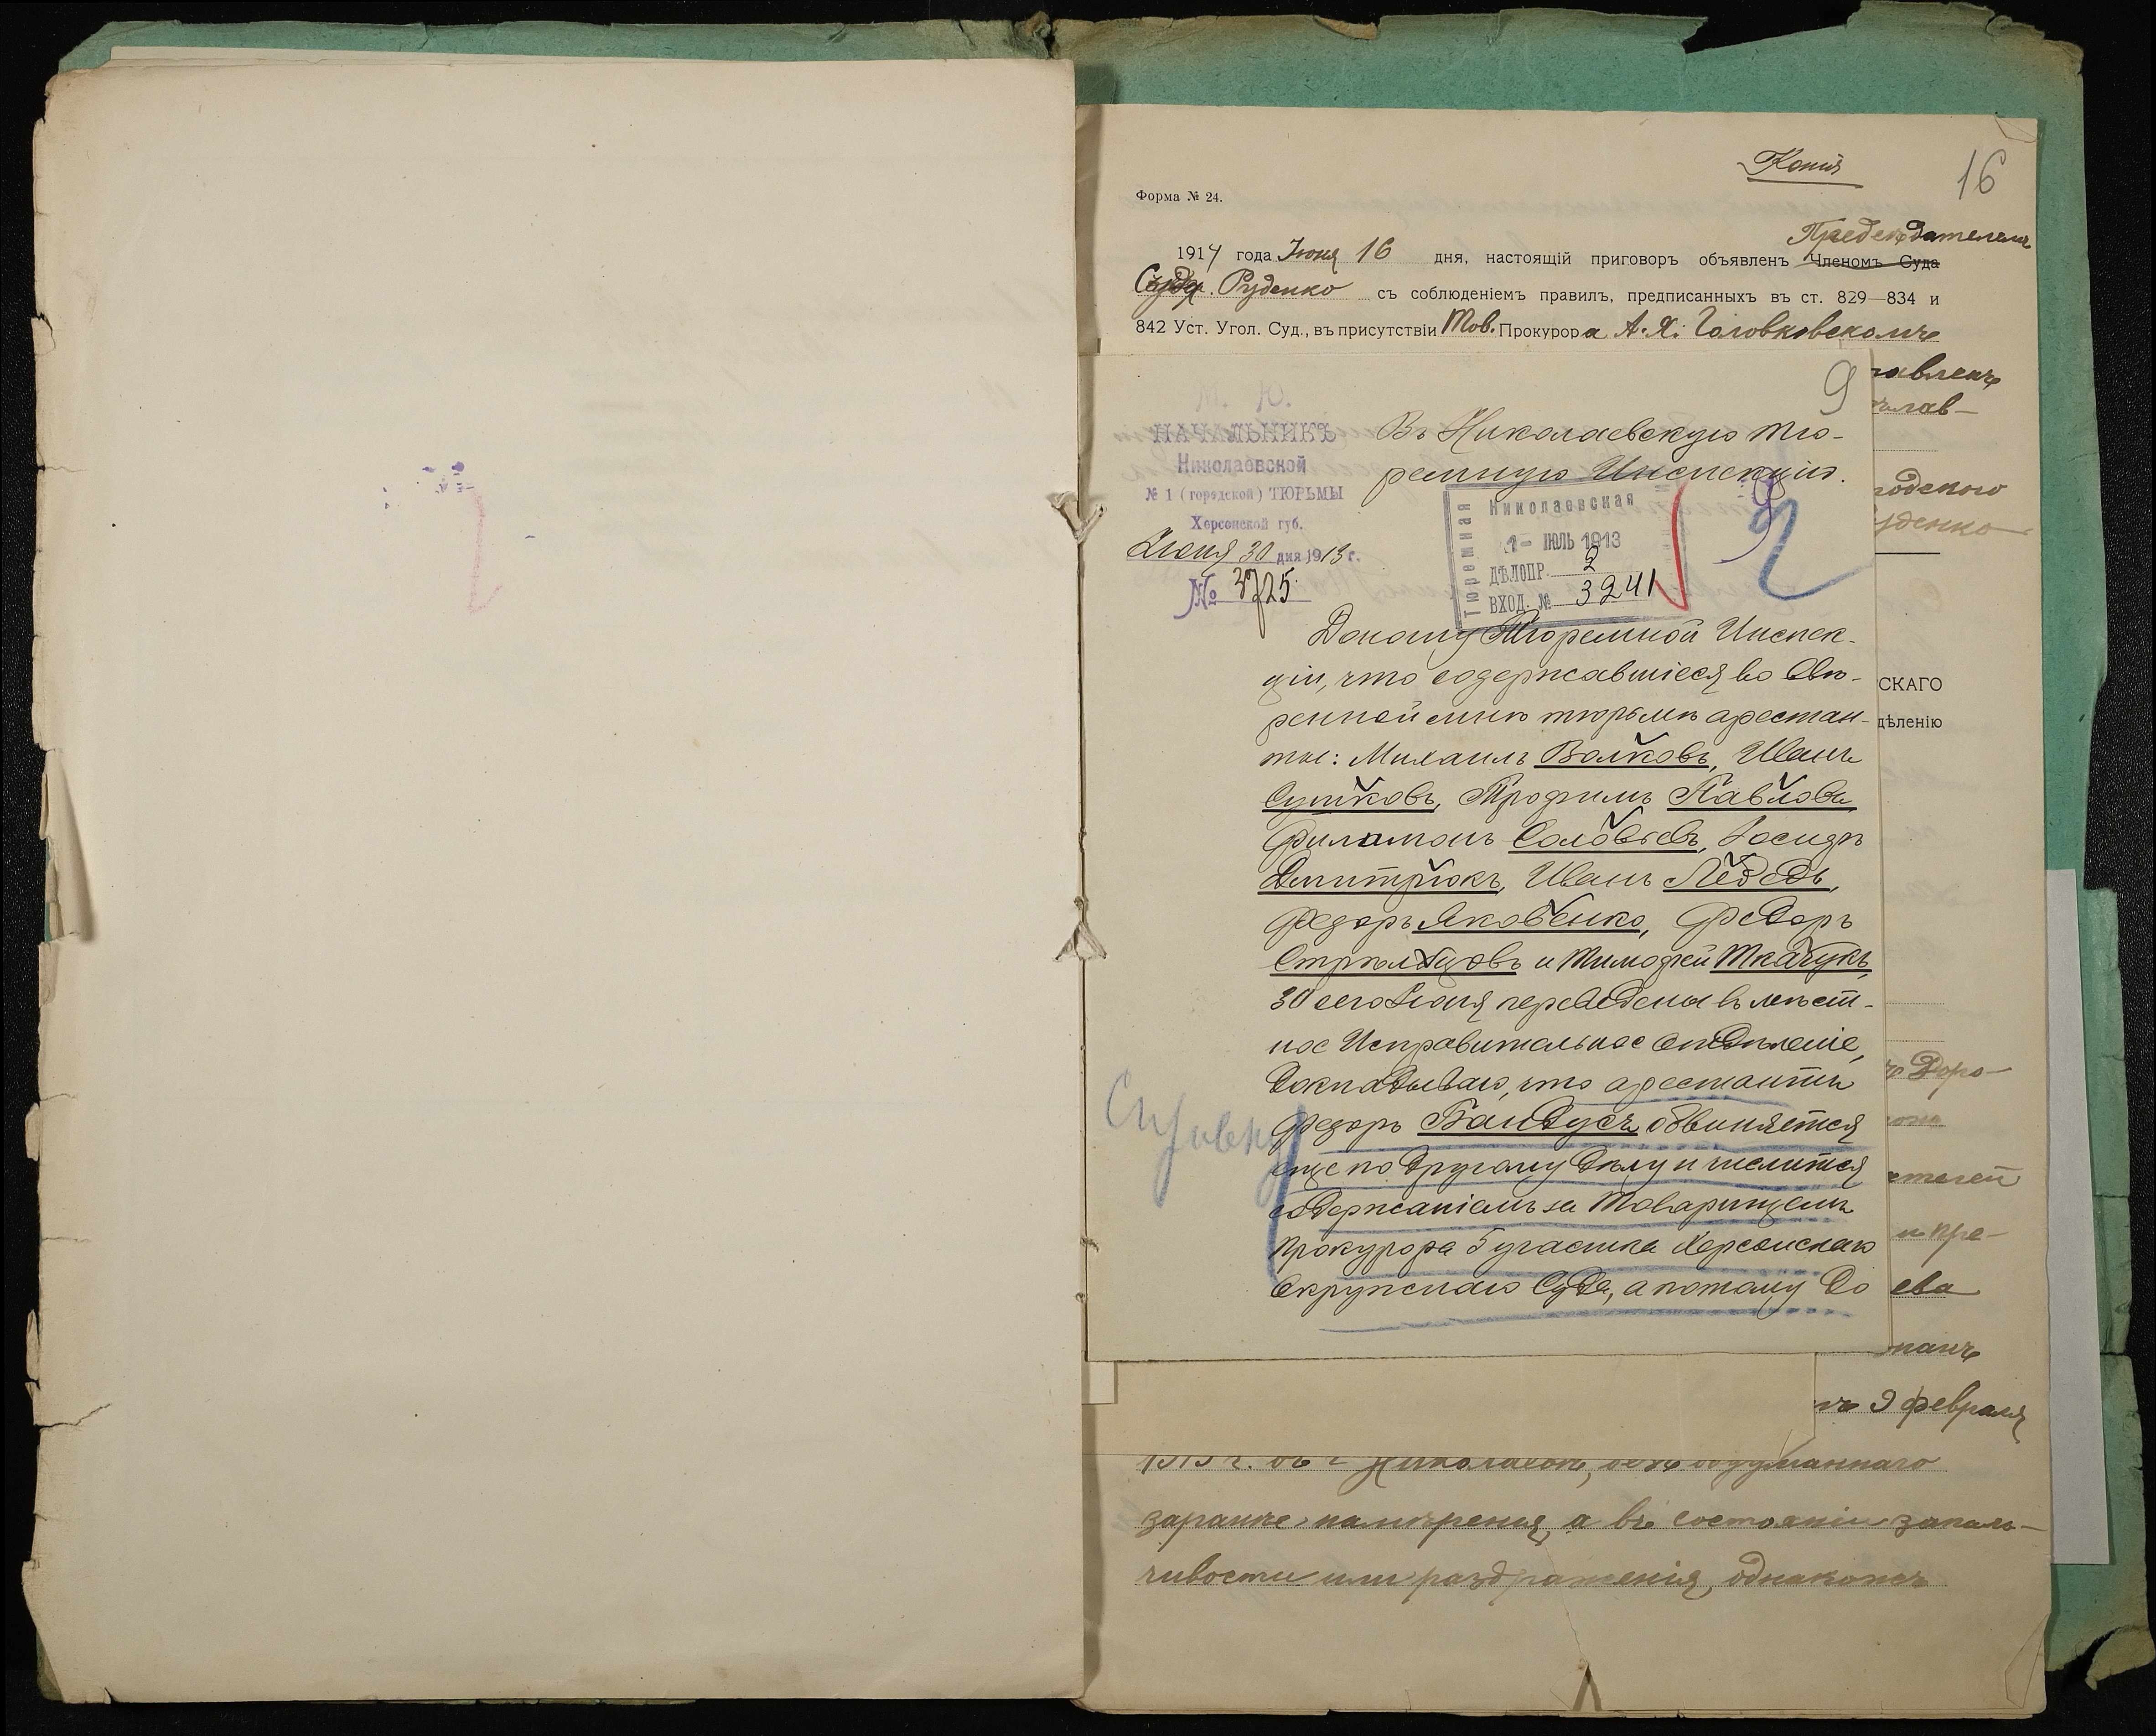 Копія
16
Форма № 24.
Предсѣдателемъ
1914 года Іюня 16 дня, настоящій приговоръ объявленъ Членомъ Суда
Суда Руденко съ соблюденіемъ правилъ, предписанныхъ въ ст. 829—834 и
842 Уст. Угол. Суд., въ присутствіи Тов. Прокурора А. Х. Головковскомъ
9
М. Ю.
НАЧАЛЬНИКЪ
Николаевской
№ 1 (городской) ТЮРЬМЫ
Херсонской губ.
Іюня 30 дня 1913 г.
№ 3725
Въ Николаевскую Тю-
ремную Инспекцію.
Тюремная
Николаевская
1 - ІЮЛЬ 1913
ДѢЛОПР. 2
ВХОД. № 3241
Доношу Тюремной Инспек-
ціи, что содержавшіеся во ввѣ-
ренной мнѣ тюрьмѣ арестан-
ты: Михаилъ Волковъ, Иванъ
Сушковъ, Трофимъ Павловъ,
Филимонъ Соловьевъ, Іосифъ
Дмитрюкъ, Иванъ Лебедь,
Федоръ Яковенко, Федоръ
Стрѣльцовъ и Тимофей Ткачукъ,
30 сего Іюня переведены въ мѣст-
ное Исправительное Отдѣленіе,
докладываю, что арестантъ
Федоръ Бандусъ обвиняется
еще по другому дѣлу и числится
содержаніемъ за Товарищемъ
Прокурора 5 участка Херсонскаго
Окружнаго Суда, а потому до
Справку
авленъ
лав-
одского
уденко
СКАГО
дѣленію
Доро-
ттей
и пре-
ева
панъ
9 февраля
1913 г. въ г. Николаевѣ, безъ обдуманнаго
заранѣе намѣренія, а въ состояніи запаль-
чивости или раздраженія, однакожъ